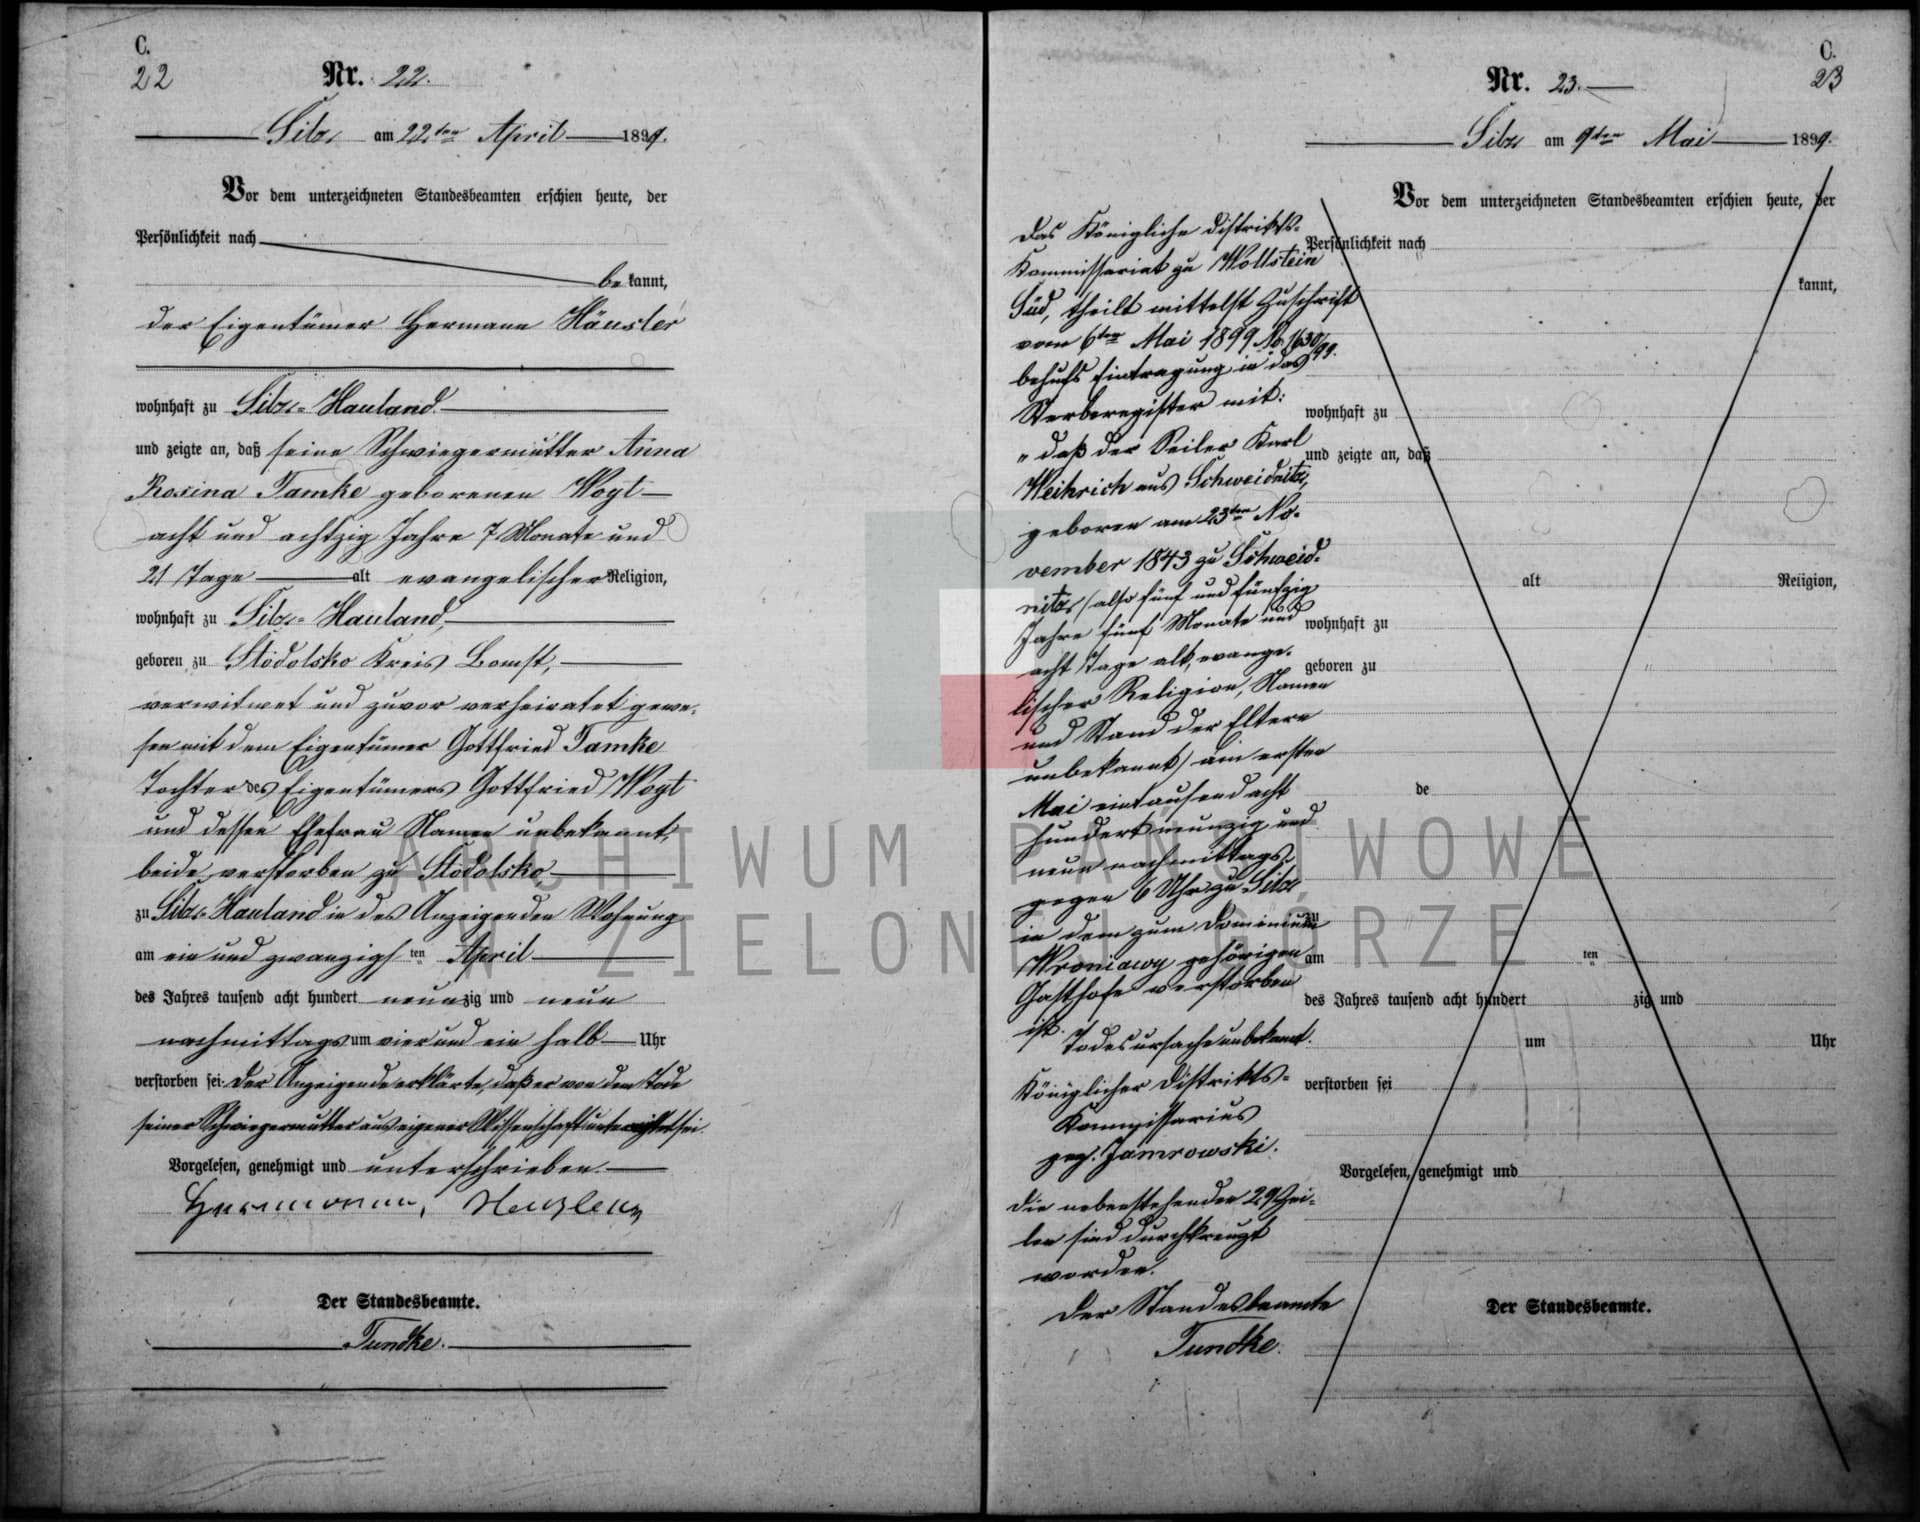 C.
22
Nr. 22.
Silz am 22ten April 1899.
Vor dem unterzeichneten Standesbeamten erschien heute, der
Persönlichkeit nach
bekannt,
der Eigentümer Hermann Häusler
wohnhaft zu Silz-Hauland.
und zeigte an, daß seine Schwiegermutter Anna
Rosina Tamke geborenen Vogt
acht und achtzig Jahre 7 Monate und
21 Tage alt evangelischer Religion,
wohnhaft zu Silz-Hauland,
geboren zu Stodolsko Kreis Bomst,
verwitwet und zuvor verheiratet gewe-
sen mit dem Eigentümer Gottfried Tamke
Tochter des Eigentümers Gottfried Vogt
und dessen Ehefrau Namen unbekannt,
beide verstorben zu Stodolsko
zu Silz-Hauland in des Anzeigenden Wohnung
am ein und zwanzigsten April
des Jahres tausend acht hundert neunzig und neun
nachmittags um vier und ein halb Uhr
verstorben sei. Der Anzeigende erklärte, daß er von dem Tode
seiner Schwiegermutter aus eigener Wissenschaft unterrichtet sei.
Vorgelesen, genehmigt und unterschrieben.
Hermann Heuzler
Der Standesbeamte.
Tundke.
C.
23
Nr. 23.
Silz am 9ten Mai 1899.
Vor dem unterzeichneten Standesbeamten erschien heute, der
Persönlichkeit nach
kannt,
wohnhaft zu
und zeigte an, daß
alt Religion,
wohnhaft zu
geboren zu
de
zu
am ten
des Jahres tausend acht hundert zig und
um Uhr
verstorben sei
Vorgelesen, genehmigt und
Der Standesbeamte.
Das Königliche Distrikts-
Kommissariat zu Wollstein
Süd, theilt mittelst Zuschrift
vom 6ten Mai 1899 No. 1630/99.
behufs Eintragung in das
Sterberegister mit:
"daß der Seiler Karl
Weihrich aus Schweidnitz,
geboren am 23ten No-
vember 1843 zu Schweid-
nitz, (also fünf und fünfzig
Jahre fünf Monate und
acht Tage alt, evange-
lischer Religion, Namen
und Stand der Eltern
unbekannt) am ersten
Mai eintausend acht
hundert neunzig und
neun nachmittags
gegen 6 Uhr zu Silz
in dem zum Dominium
Wroniawy gehörigen
Gasthofe verstorben
ist. Todesursache unbekannt.
Königlicher Distrikts-
Kommissarius
gez. Jamrowski.
Die nebenstehenden 29 Zei-
len sind durchkreuzt
worden.
Der Standesbeamte
Tundke.
ARCHIWUM PAŃSTWOWE
W ZIELONEJ GÓRZE